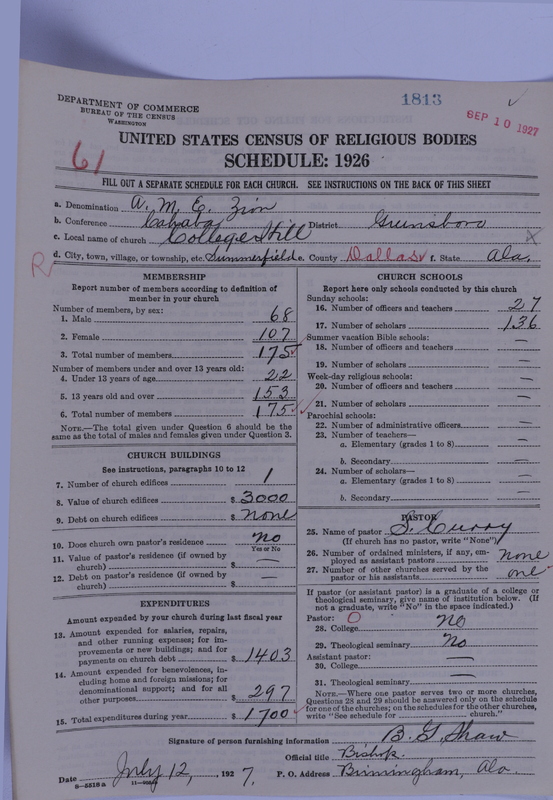 1813
SEP 10 1927
DEPARTMENT OF COMMERCE
BUREAU OF THE CENSUS
WASHINGTON
UNITED STATES CENSUS OF RELIGIOUS BODIES
61
SCHEDULE: 1926
FILL OUT A SEPARATE SCHEDULE FOR EACH CHURCH. SEE INSTRUCTIONS ON THE BACK OF THIS SHEET
a. Denomination A. M. E. Zion
b. Conference Cahaba District Greensboro
c. Local name of church College Hill
d. City, town, village, or township, etc. Summerfield e. County Dallas f. State Ala.
R
MEMBERSHIP
Report number of members according to definition of
member in your church
Number of members, by sex:
1. Male 68
2. Female 107
3. Total number of members 175
Number of members under and over 13 years old:
4. Under 13 years of age 22
5. 13 years old and over 153
6. Total number of members 175
NOTE.—The total given under Question 6 should be
same as the total of males and females given under Question 3.
CHURCH BUILDINGS
See instructions, paragraphs 10 to 12
7. Number of church edifices 1
8. Value of church edifices $ 3000
9. Debt on church edifices $ none
10. Does church own pastor's residence? no
Yes or No
11. Value of pastor's residence (if owned by
church) $ —
12. Debt on pastor's residence (if owned by
church) $ —
EXPENDITURES
Amount expended by your church during last fiscal year
13. Amount expended for salaries, repairs,
and other running expenses; for im-
provements or new buildings; and for
payments on church debt $ 1403
14. Amount expended for benevolences, in-
cluding home and foreign missions; for
denominational support; and for all
other purposes $ 297
15. Total expenditures during year $ 1700
CHURCH SCHOOLS
Report here only schools conducted by this church
Sunday schools:
16. Number of officers and teachers 27
17. Number of scholars 136
Summer vacation Bible schools:
18. Number of officers and teachers —
19. Number of scholars —
Week-day religious schools:
20. Number of officers and teachers —
21. Number of scholars —
Parochial schools:
22. Number of administrative officers —
23. Number of teachers—
a. Elementary (grades 1 to 8) —
b. Secondary —
24. Number of scholars—
a. Elementary (grades 1 to 8) —
b. Secondary —
PASTOR
25. Name of pastor S. Curry
(If church has no pastor, write "None")
26. Number of ordained ministers, if any, em-
ployed as assistant pastors none
27. Number of other churches served by the
pastor or his assistants one
If pastor (or assistant pastor) is a graduate of a college or
theological seminary, give name of institution below. (If
not a graduate, write "No" in the space indicated.)
Pastor: O
28. College no
29. Theological seminary No
Assistant pastor:
30. College —
31. Theological seminary —
NOTE.—Where one pastor serves two or more churches,
Questions 28 and 29 should be answered only on the schedule
for one of the churches; on the schedules for the other churches,
write "See schedule for church."
Signature of person furnishing information B. G. Shaw
Official title Bishop.
Date July 12, 1927. P. O. Address Birmingham, Ala.
8—5518 a